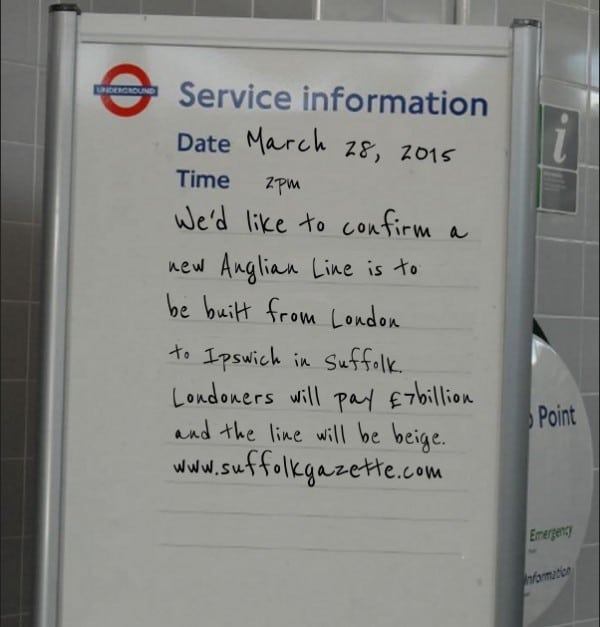 UNDERGROUND
Service information
Date March 28, 2015
Time 2pm
We'd like to confirm a
new Anglian Line is to
be built from London
to Ipswich in Suffolk.
Londoners will pay £7billion
and the line will be beige.
www.suffolkgazette.com
i
Point
Emergency
Information